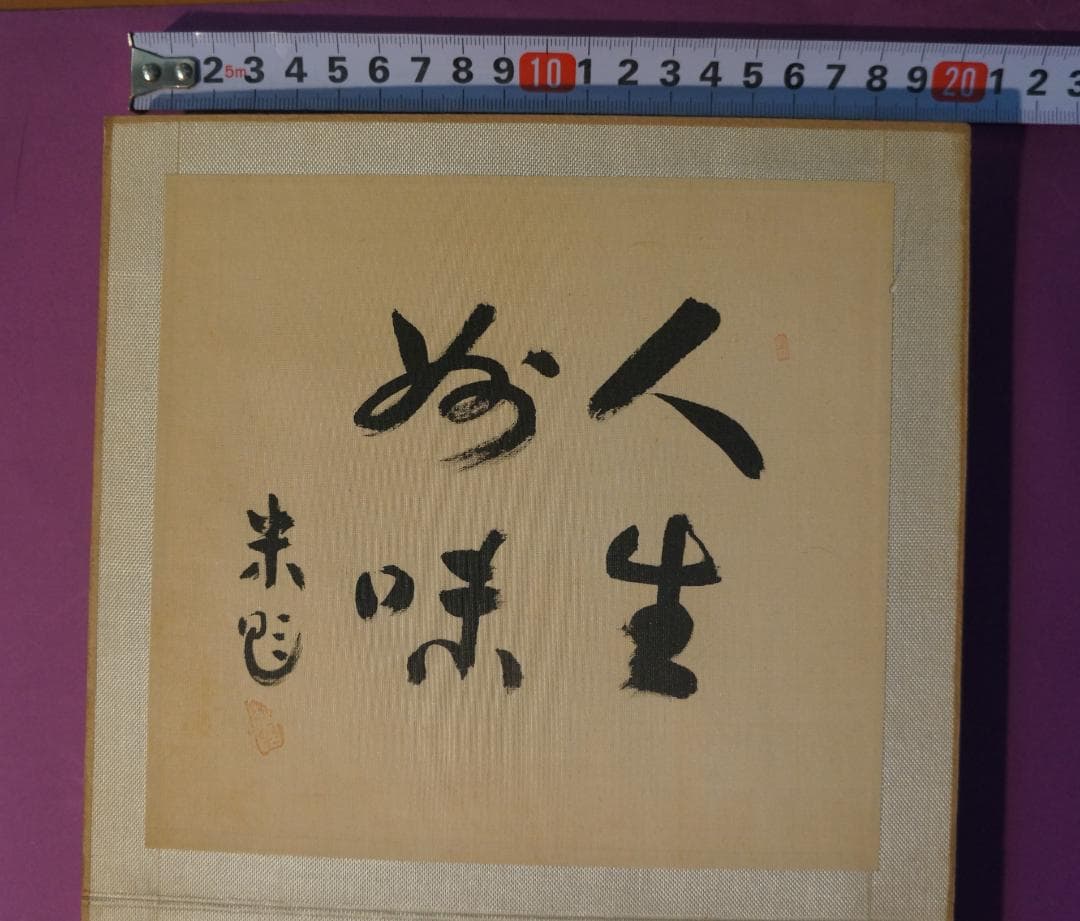 2 5m 3 4 5 6 7 8 9 10 1 2 3 4 5 6 7 8 9 20 1 2 3
人生
妙味
米題